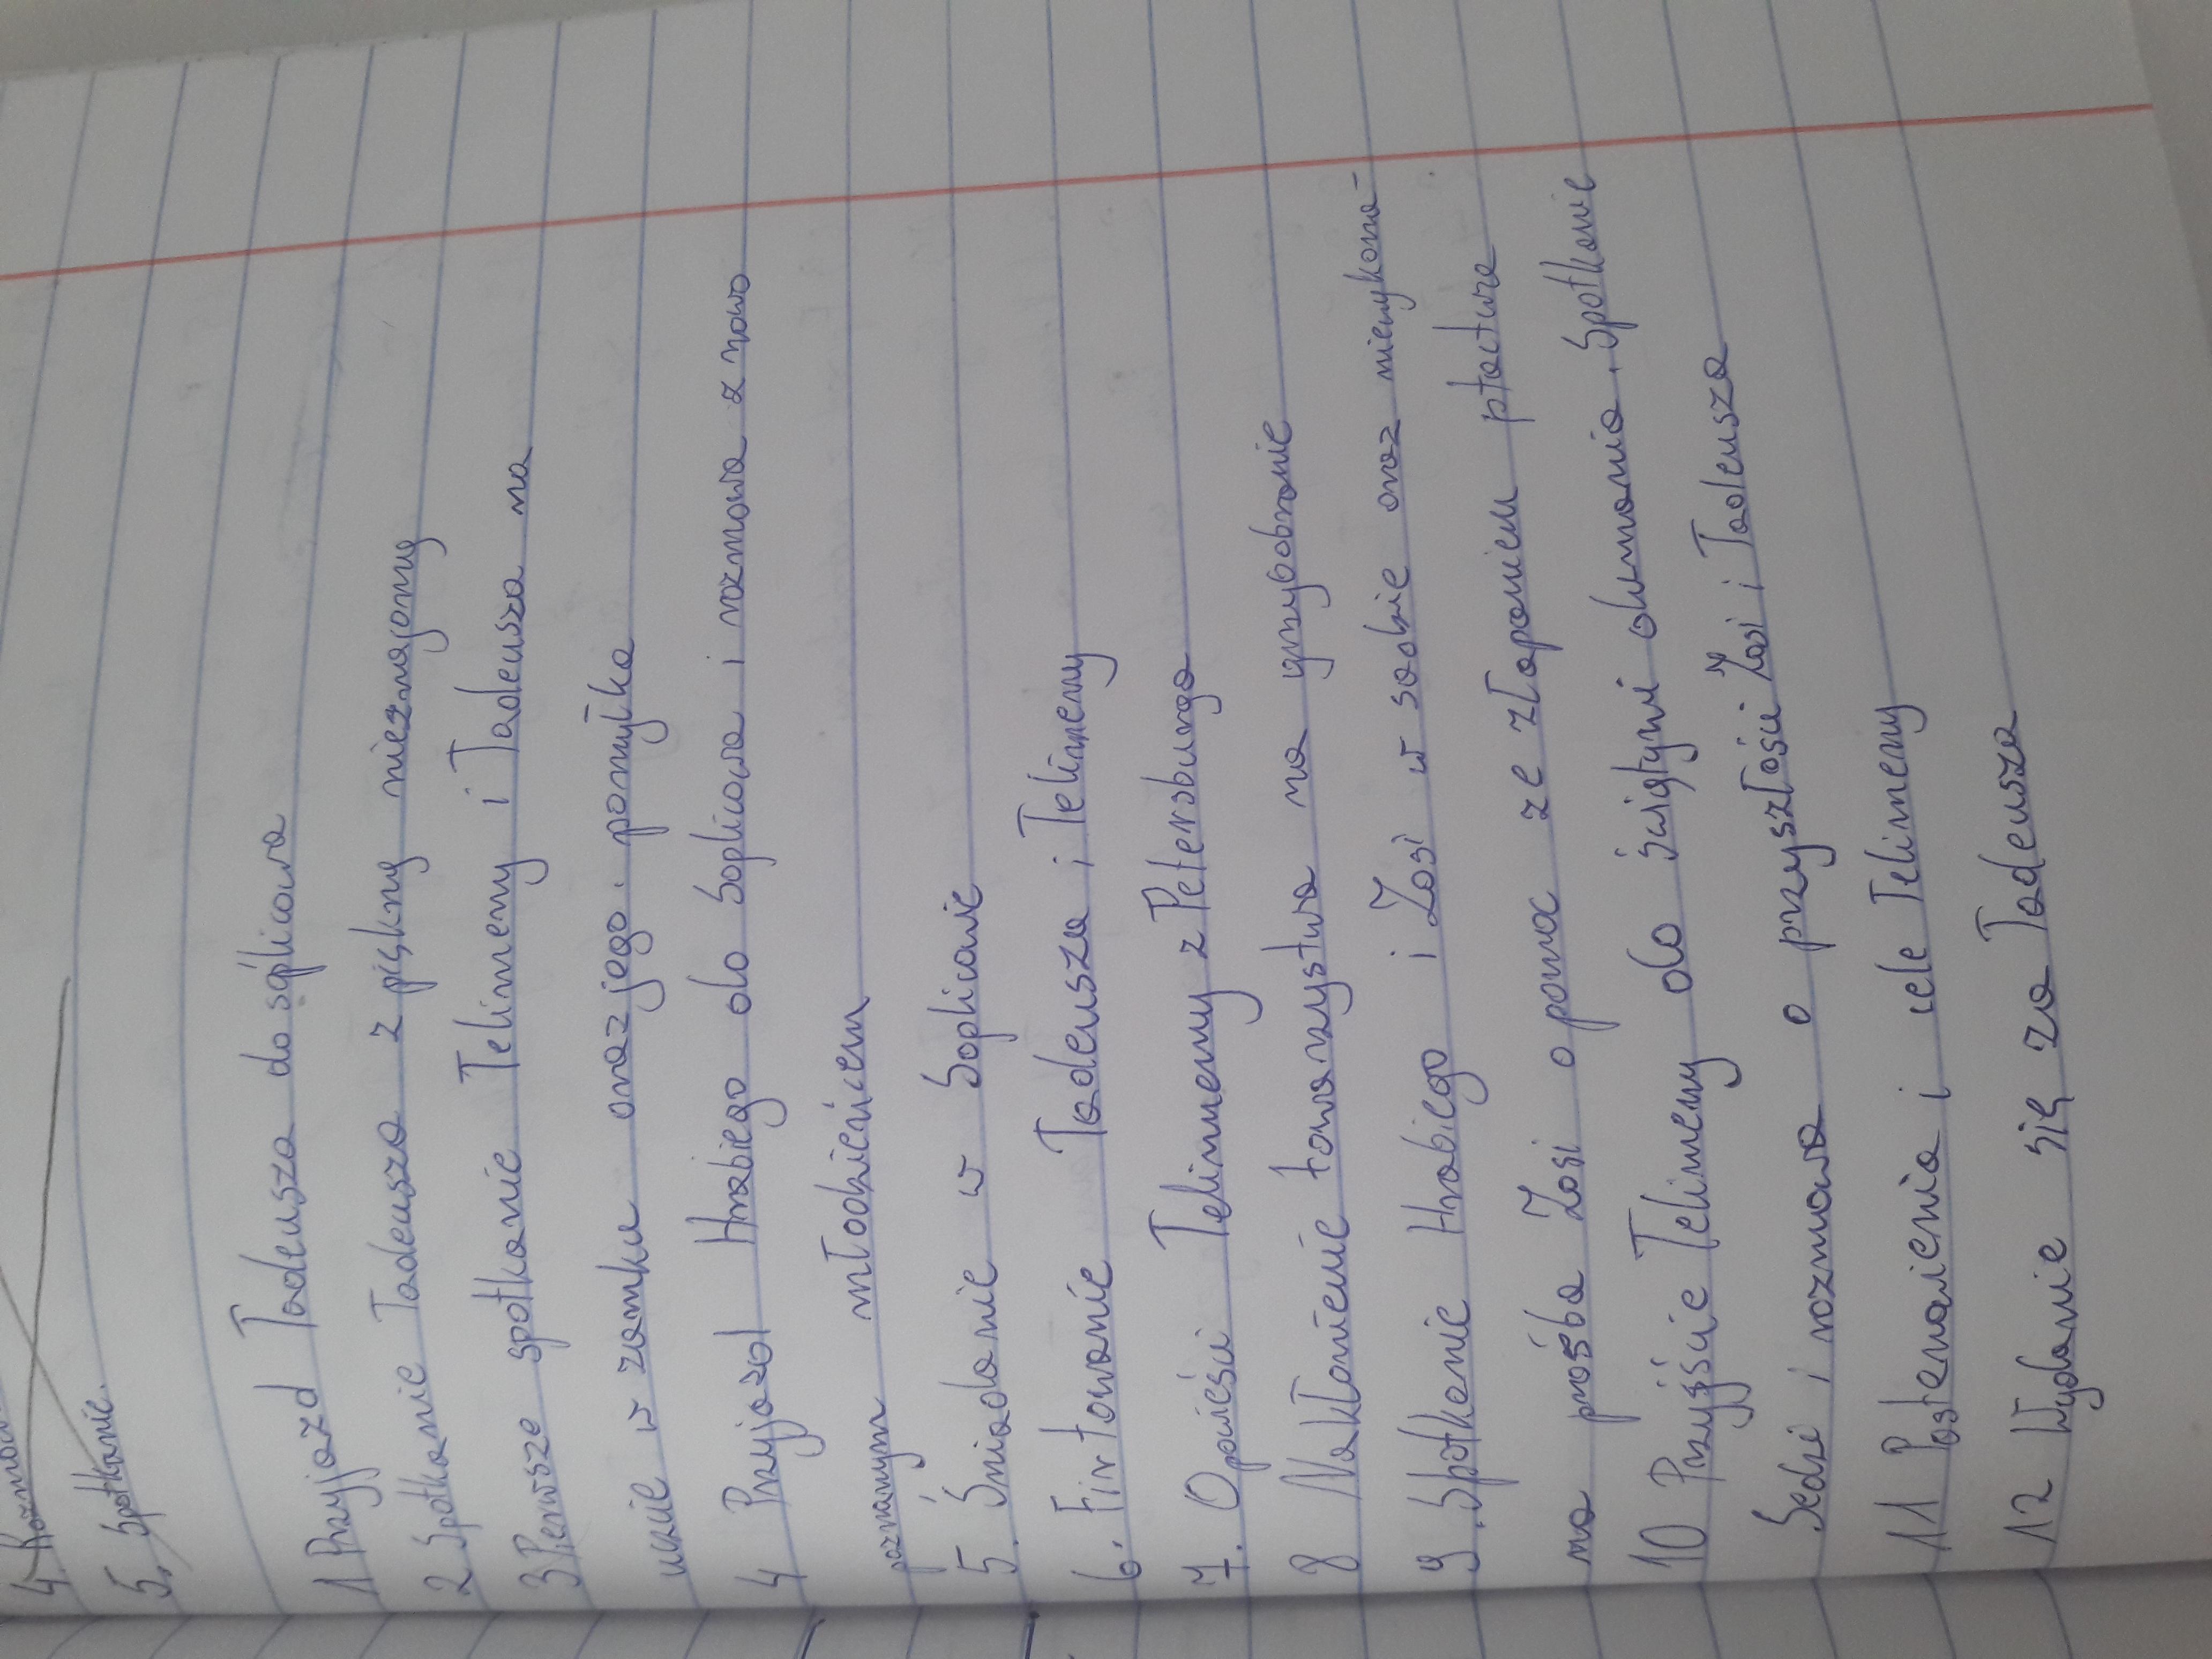 4. Rozmowa
5. Spotkanie.
1 Przyjazd Tadeusza do soplicowa
2 Spotkanie Tadeusza z piękną nieznajomą
3 Pierwsze spotkanie Telimeny i Tadeusza na
uczcie w zamku oraz jego. pomyłka
4 Przyjazd Hrabiego do Soplicowa i rozmowa z nowo
poznanym młodzieńcem
5. Śniadanie w Soplicowie
6. Firtowanie Tadeusza i Telimeny
7. Opowieści Telimeny z Petersburga
8 Nakłonienie towarzystwa na grzybobranie
9. Spotkanie Hrabiego i Zosi w sadzie oraz niewykona-
na prośba Zosi o pomoc ze złapaniem ptactwa
10 Przyjście Telimeny do świątyni dumania. Spotkanie
Sędzi i rozmowa o przyszłości Zosi i Tadeusza
11 Postanowienia i cele Telimeny
12 Wydanie się za Tadeusza